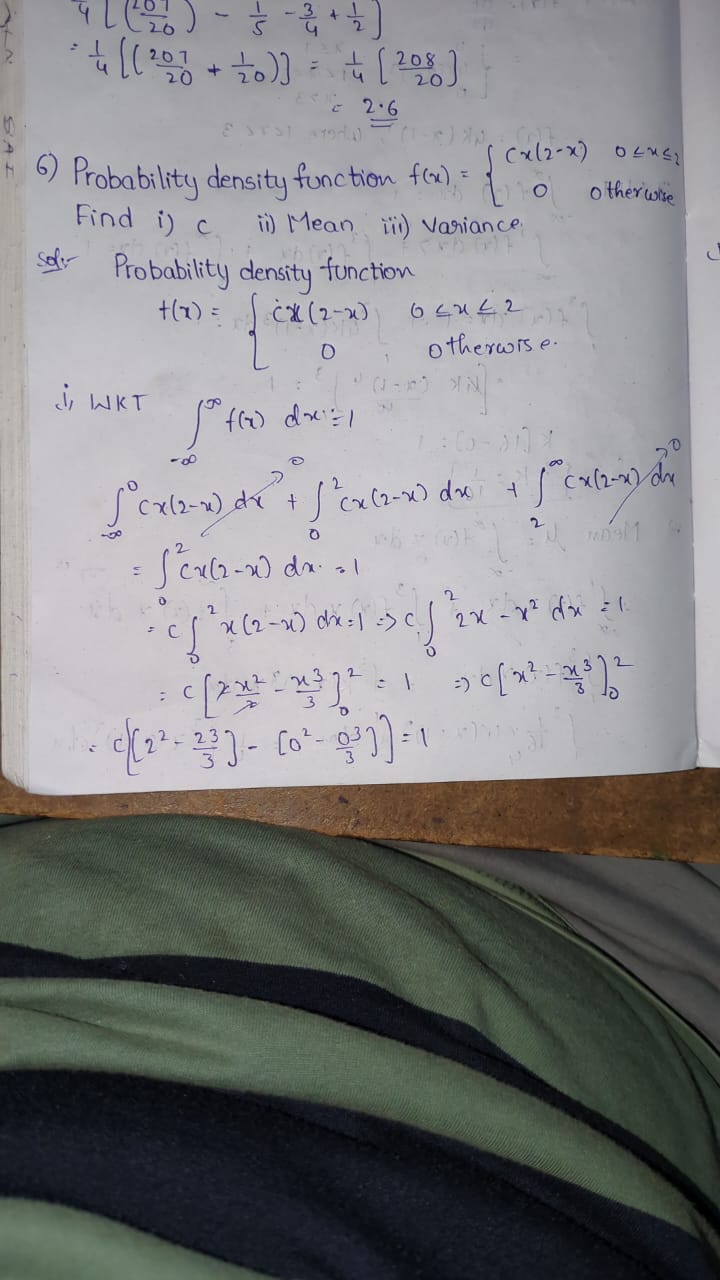 1/4 [(207/20) - 1/5 - 3/4 + 1/2]
= 1/4 [(207/20 + 1/20)] = 1/4 [208/20]
= 2.6
6) Probability density function f(x) = { cx(2-x) 0≤x≤2
0 otherwise
Find i) c ii) Mean iii) Variance
Sol:- Probability density function
f(x) = { cx(2-x) 0≤x≤2
0 otherwise.
i, WKT ∫_{-∞}^{∞} f(x) dx = 1
∫_{-∞}^{0} cx(2-x) dx → 0 + ∫_{0}^{2} cx(2-x) dx + ∫_{2}^{∞} cx(2-x) dx → 0
= ∫_{0}^{2} cx(2-x) dx = 1
= c ∫_{0}^{2} x(2-x) dx = 1 => c ∫_{0}^{2} 2x - x² dx = 1
= c [2x²/2 - x³/3]_{0}^{2} = 1 => c [x² - x³/3]_{0}^{2}
= c[[2² - 2³/3] - [0² - 0³/3]] = 1